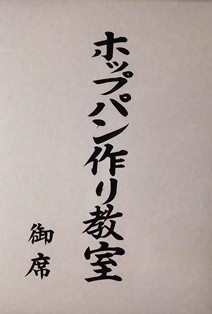 ホップパン作り教室
御席